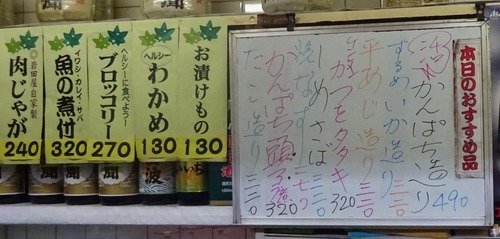 本日のおすすめ品
(活)かんぱち造り 490
するめいか造り 三三〇
平めじ造り 三三〇
カツオタタキ 320
しめさば 三三〇
かんぱち頭 320
だこ造り 三三〇
お漬けもの 130
ヘルシー わかめ 130
ヘルシーに食べよう!
ブロッコリー 270
イワシ・カレイ・サバ
魚の煮付 320
岩田屋自家製
肉じゃが 240